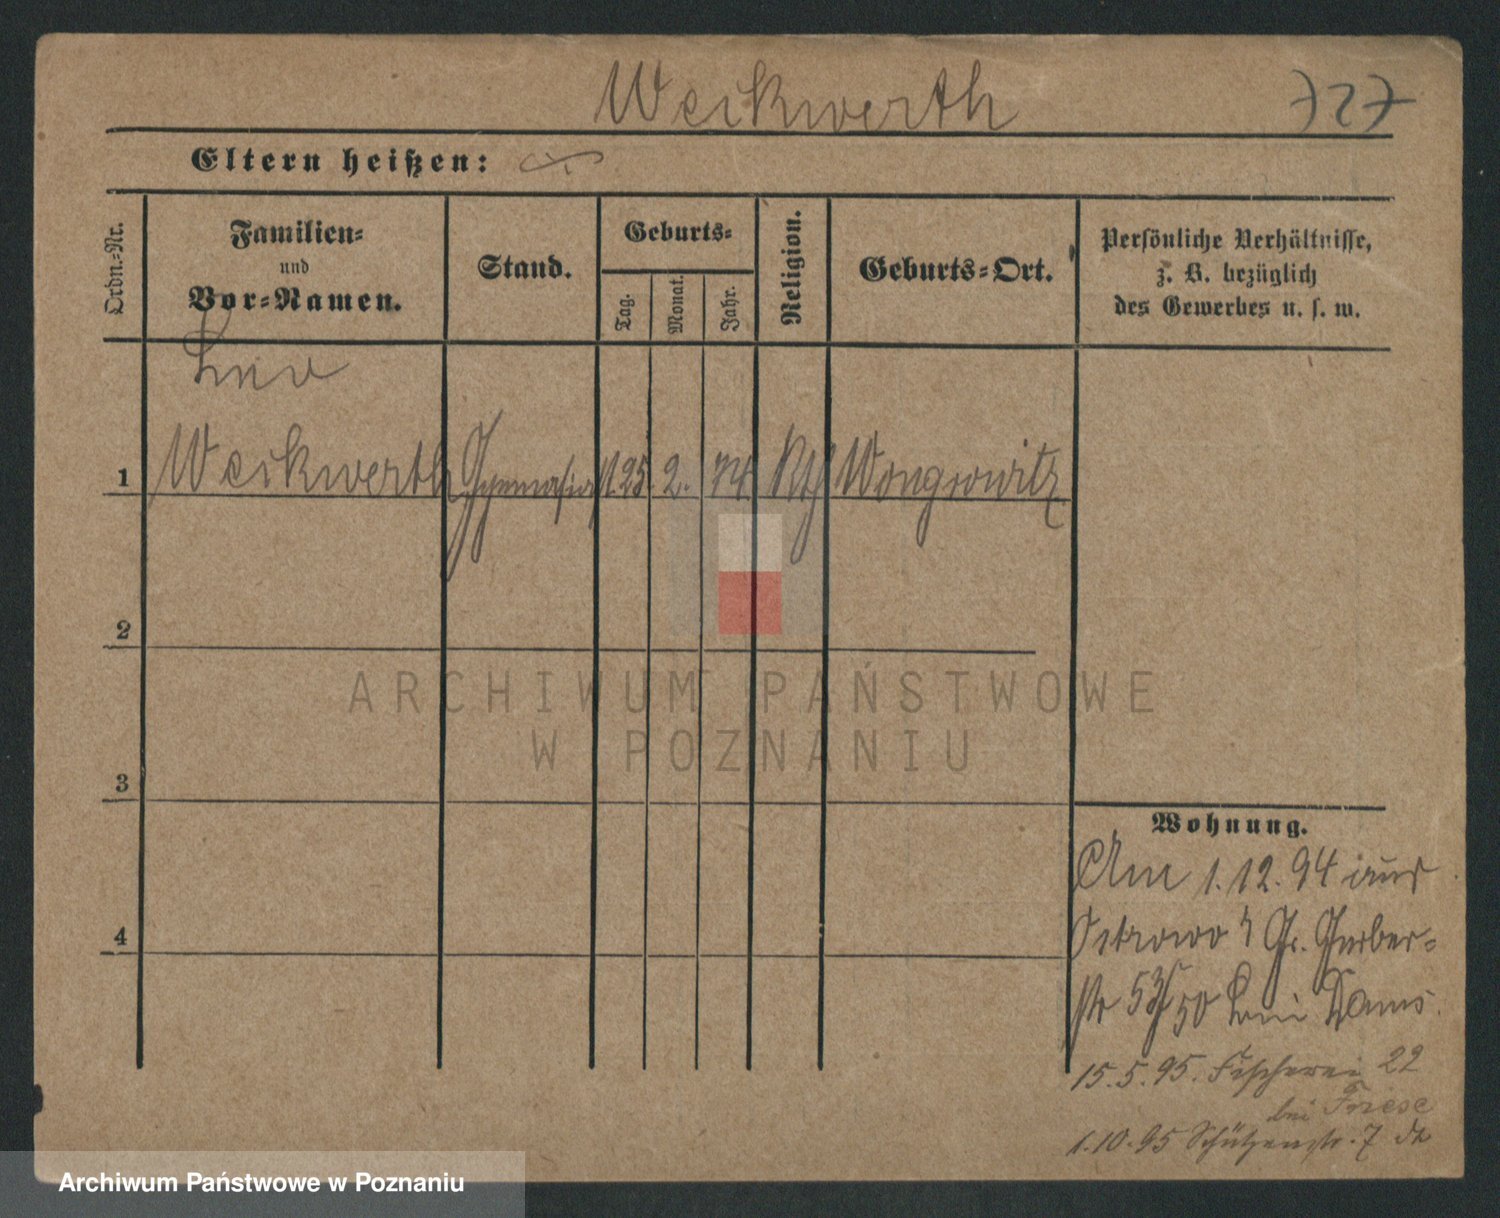 Weckwerth
727
Eltern heißen:
Ordn.-Nr.
Familien-
und
Vor-Namen.
Stand.
Geburts-
Tag.
Monat.
Jahr.
Religion.
Geburts-Ort.
Persönliche Verhältnisse,
z. B. bezüglich
des Gewerbes u. s. w.
Leo
1 Weckwerth Gymnasiast 25. 2. 74 Kth Wongrowitz
2
ARCHIWUM PAŃSTWOWE
W POZNANIU
3
Wohnung.
Am 1.12.94 aus
4
Ostrowo Gr. Gerber-
str 53/50 bei
15.5.95. Fischerei 22
bei Friese
1.10.95 Schützenstr. 7
Archiwum Państwowe w Poznaniu